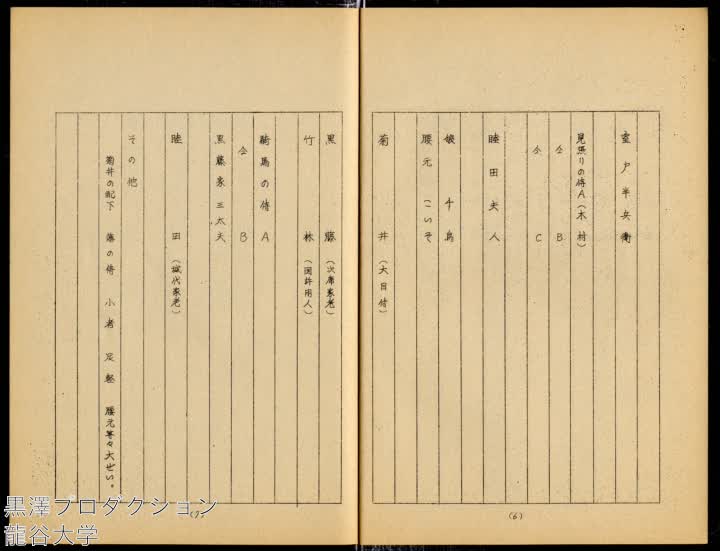 室戸半兵衛
見張りの侍A(木村)
仝 B
仝 C
睦田夫人
娘 千鳥
腰元 こいそ
菊井(大目付)
(6)
黒藤(次席家老)
竹林(国許用人)
騎馬の侍A
仝 B
黒藤家三太夫
睦田(城代家老)
その他
菊井の配下 藩の侍 小者 足軽 腰元等々大ぜい。
(7)
黒澤プロダクション
龍谷大学